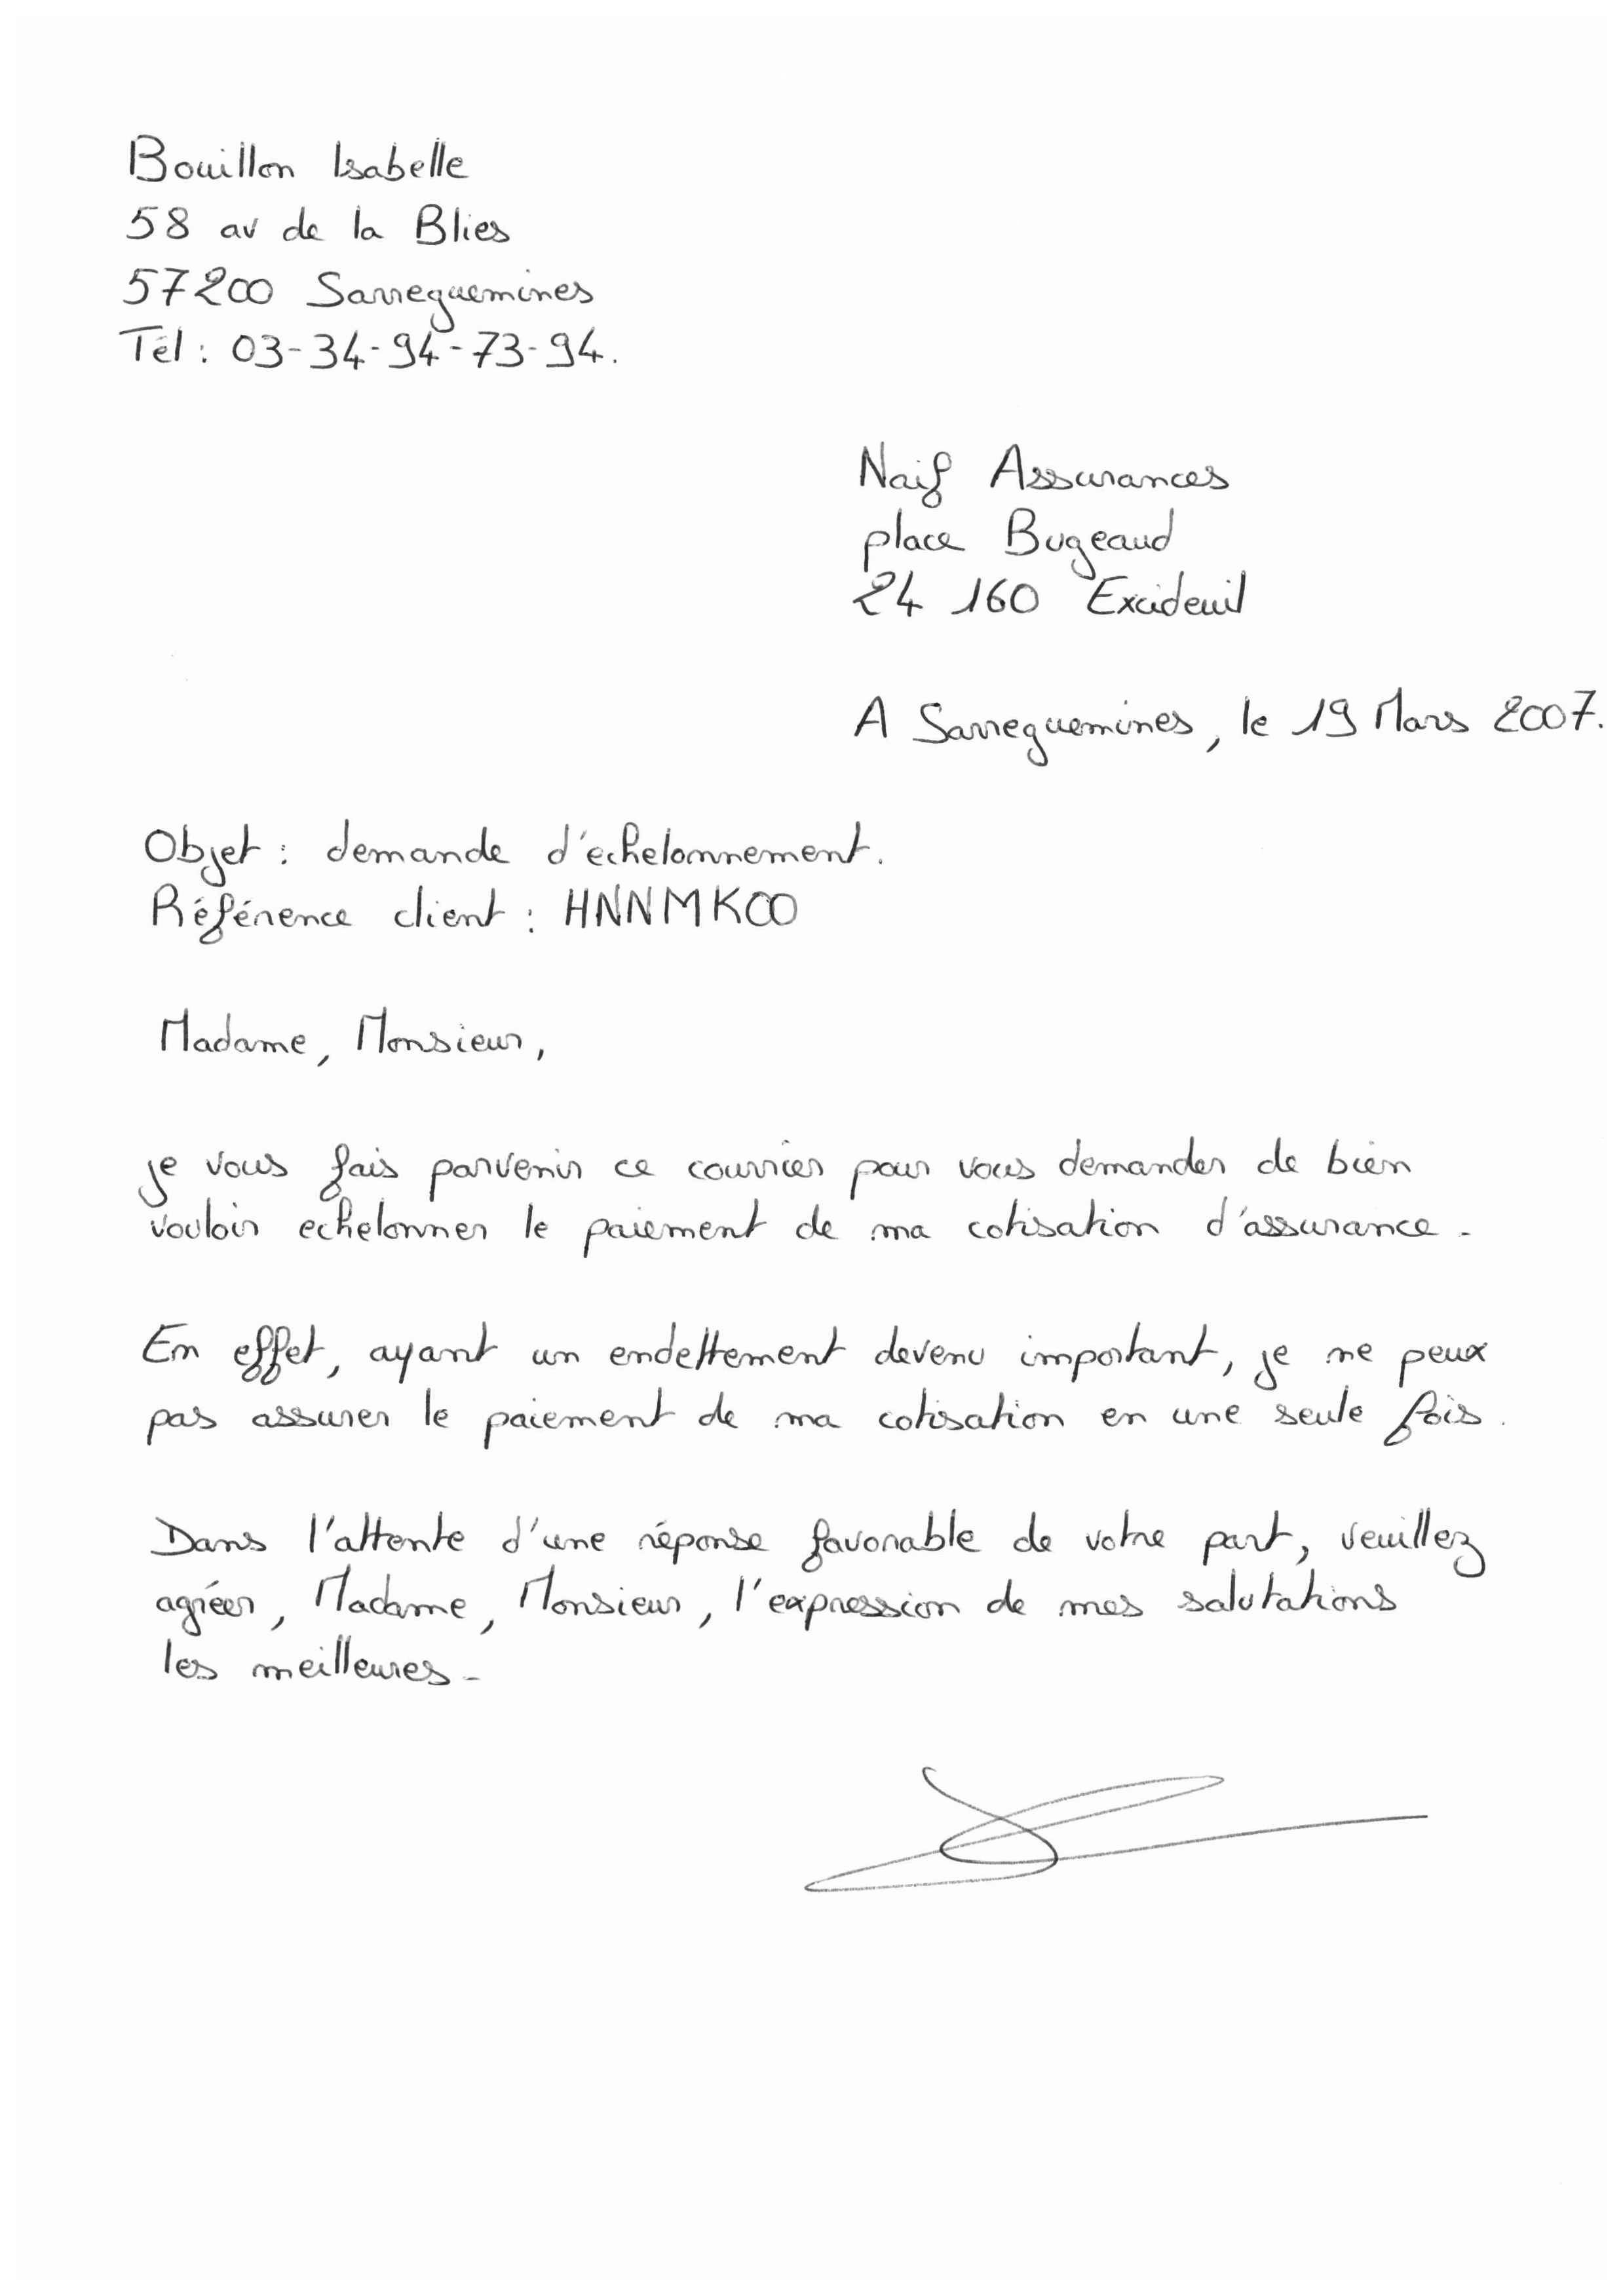 Bouillon Isabelle
58 av de la Blies
57200 Sarreguemines
Tél : 03-34-94-73-94.
Naif Assurances
place Bugeaud
24 160 Excideuil
A Sarreguemines, le 19 Mars 2007.
Objet : demande d'echelonnement.
Référence client : HNNMK00
Madame, Monsieur,
je vous fais parvenir ce courrier pour vous demander de bien
vouloir echelonner le paiement de ma cotisation d'assurance.
En effet, ayant un endettement devenu important, je ne peux
pas assurer le paiement de ma cotisation en une seule fois.
Dans l'attente d'une réponse favorable de votre part, veuillez
agréer, Madame, Monsieur, l'expression de mes salutations
les meilleures.